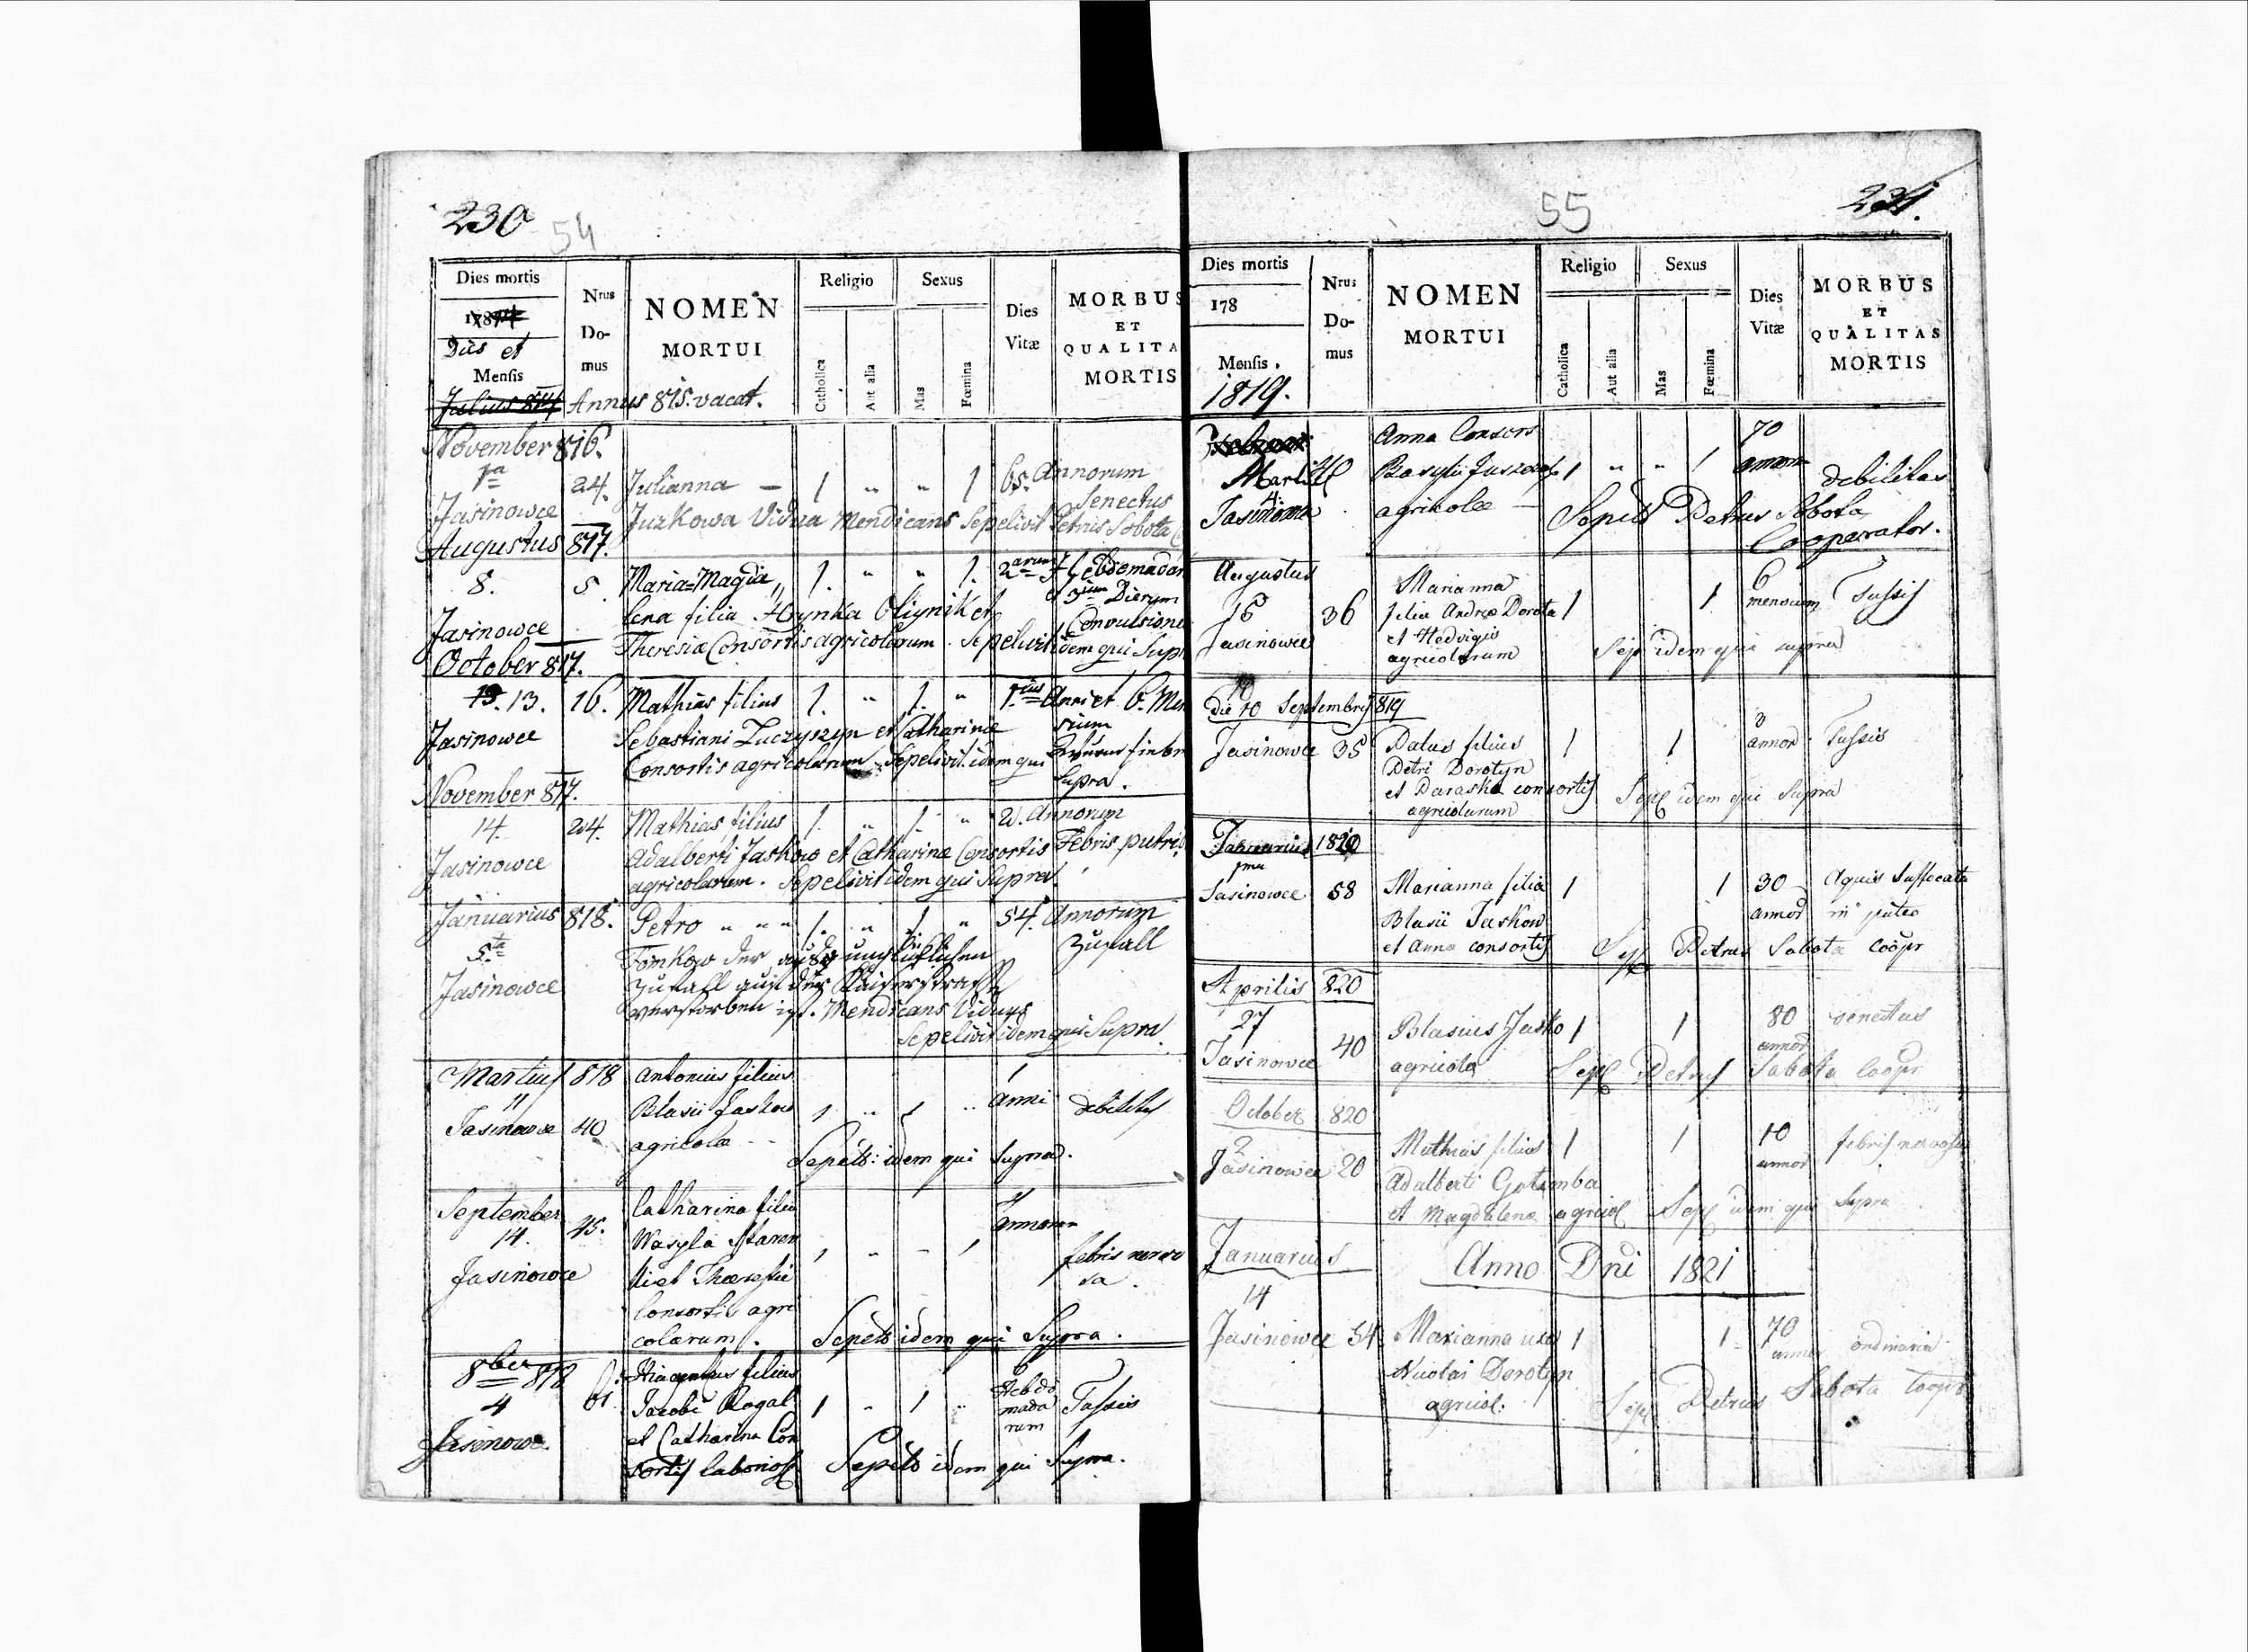 230
54
Dies mortis
Nrus
Do-
mus
NOMEN
MORTUI
Religio
Catholica
Aut alia
Sexus
Mas
Fœmina
Dies
Vitæ
MORBUS
ET
QUALITA
MORTIS
Dies et
Mensis
Julius 814 Annus 815. vacat.
November 816.
1ma 24. Julianna — 1 " " 1 65. Annorum
Senectus
Jasinowce Jurkowa Vidua Mendicans Sepelivit Petrus Sobota C
Augustus 817.
8. 5. Maria=Magda 1. " " 1. 2arum Hebdomadar
et 3um Dierum
Jasinowce lena filia Hrynka Oliynik et Convulsione
Theresiæ Consortis agricolarum. Sepelivit idem qui Supr
October 817.
13. 13. 16. Mathias filius 1. " 1. " 1.ius Anni et 6. Men
sium
Jasinowce Sebastiani Łuczyszyn et Catharinæ
Consortis agricolarum. Sepelivit idem qui
Supra.
November 817.
14. 24. Mathias filius 1. " 1. " 2. Annorum
Jasinowce Adalberti Jaskow et Catharinæ Consortis Febris putrid
agricolarum. Sepelivit idem qui Supra.
Januarius 818. Petro " " " 1. " 1. " 54. Annorum
5ta Tomkow der Zufall
Jasinowce Zufall auf der Kaiserstrasse
verstorben ist. Mendicans Viduus
Sepelivit idem qui Supra.
Martius 818 Antonius filius 1
11 Blasii Jaskow 1 " 1 " anni debilitas
Jasinowce 40 agricolæ --
Sepelt: idem qui supra.
September Catharina filia 4
14. 45. Wasyla 1 " - 1 annorum
Jasinowce febris nervo
sa.
Consortis agri
colarum. Sepelt idem qui Supra.
8ber 818 filius 6
4 61 Jacobi Rogal 1 " 1 " Hebdo
mada
rum Tussis
Jasinowce et Catharina Con
sortis laborios Sepelt idem qui Supra.
55
231.
Dies mortis
178
Mensis.
1819.
Nrus
Do-
mus
NOMEN
MORTUI
Religio
Catholica
Aut alia
Sexus
Mas
Fœmina
Dies
Vitæ
MORBUS
ET
QUALITAS
MORTIS
Anna Consors 70
Martii Basylii 1 " " 1 annorum debilitas
4.
Jasinowce agricolæ — Sepelt Petrus Sobota
Cooperator.
Augustus Marianna 6
15 36 filia Andreæ Dorota 1 1 mensium Tussis
Jasinowce et Hedvigis
agricolarum Sep idem qui supra
Die 10 Septembris 819
Jasinowce 35 Palus filius 1 1 3 annor Tussis
Petri Dorotyn
et Paraska consortis Sepel idem qui Supra
agricolarum
Januarius 1820
1ma
Jasinowce 58 Marianna filia 1 1 30 aquis suffocata
annor in puteo
Blasii Jaskow
et Anna consortis Sep Petrus Sobota Coopr
Aprilis 820
27 40 Blasius Jasko 1 1 80 senectus
annor
Jasinowce agricola Sepel Petrus Sobota Coopr
October 820
2 Mathias filius 1 1 10 febris nervosa
annor
Jasinowce 20 Adalberti Gołemba
et Magdalena agricol Sepel idem qui Supra
Januarius Anno Dni 1821
14
Jasinowce 54 Marianna uxor 1 1 70 ordinaria
Nicolai Dorotyn
agricol. Sepel Petrus Sobota Coopr